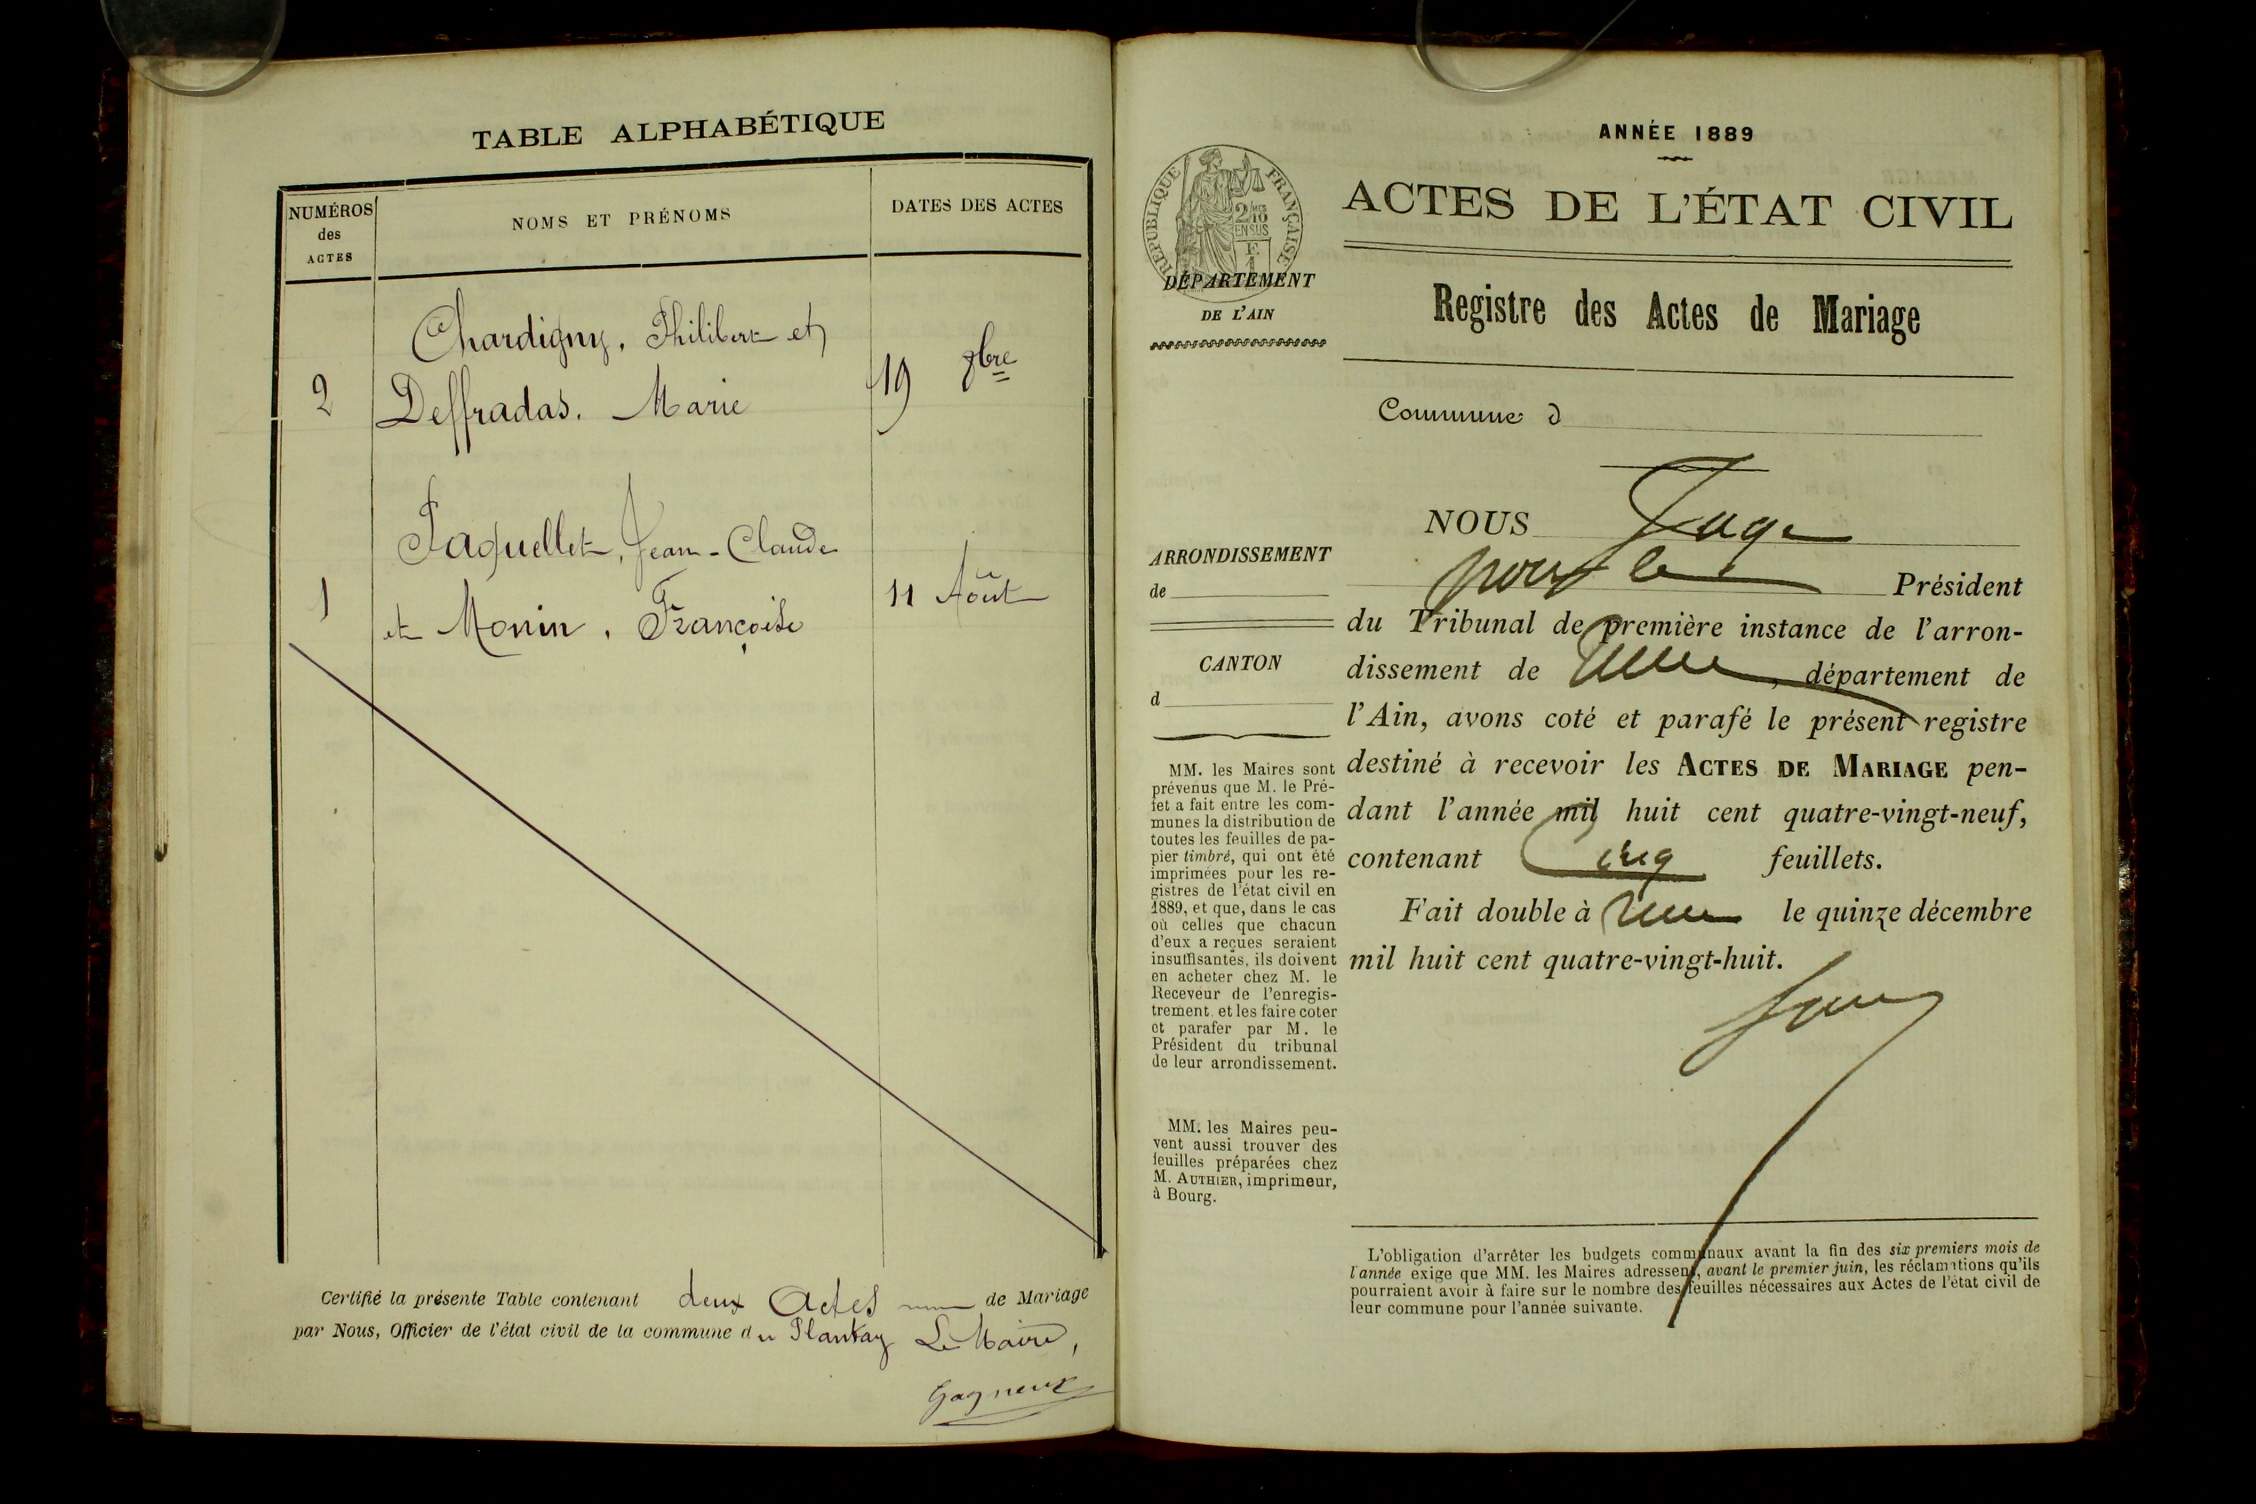 TABLE ALPHABÉTIQUE
NUMÉROS
des
ACTES
NOMS ET PRÉNOMS
DATES DES ACTES
Chardigny, Philibert et
2 Deffradas. Marie 19 8bre
Paquellet, Jean-Claude
1 et Monin, Françoise 11 Août
Certifié la présente Table contenant deux Actes de Mariage
par Nous, Officier de l'état civil de la commune du Plantay Le Maire,
Gagneux
ANNÉE 1889
RÉPUBLIQUE FRANÇAISE
2/10
EN SUS
DÉPARTEMENT
DE L'AIN
ACTES DE L'ÉTAT CIVIL
Registre des Actes de Mariage
Commune d
ARRONDISSEMENT
de
CANTON
d
MM. les Maires sont
prévenus que M. le Pré-
fet a fait entre les com-
munes la distribution de
toutes les feuilles de pa-
pier timbré, qui ont été
imprimées pour les re-
gistres de l'état civil en
1889, et que, dans le cas
où celles que chacun
d'eux a reçues seraient
insuffisantes, ils doivent
en acheter chez M. le
Receveur de l'enregis-
trement et les faire coter
et parafer par M. le
Président du tribunal
de leur arrondissement.
MM. les Maires peu-
vent aussi trouver des
feuilles préparées chez
M. AUTHIER, imprimeur,
à Bourg.
NOUS Juge
pour le Président
du Tribunal de première instance de l'arron-
dissement de , département de
l'Ain, avons coté et parafé le présent registre
destiné à recevoir les ACTES DE MARIAGE pen-
dant l'année mil huit cent quatre-vingt-neuf,
contenant Cinq feuillets.
Fait double à le quinze décembre
mil huit cent quatre-vingt-huit.
L'obligation d'arrêter les budgets communaux avant la fin des six premiers mois de
l'année exige que MM. les Maires adressent, avant le premier juin, les réclamations qu'ils
pourraient avoir à faire sur le nombre des feuilles nécessaires aux Actes de l'état civil de
leur commune pour l'année suivante.